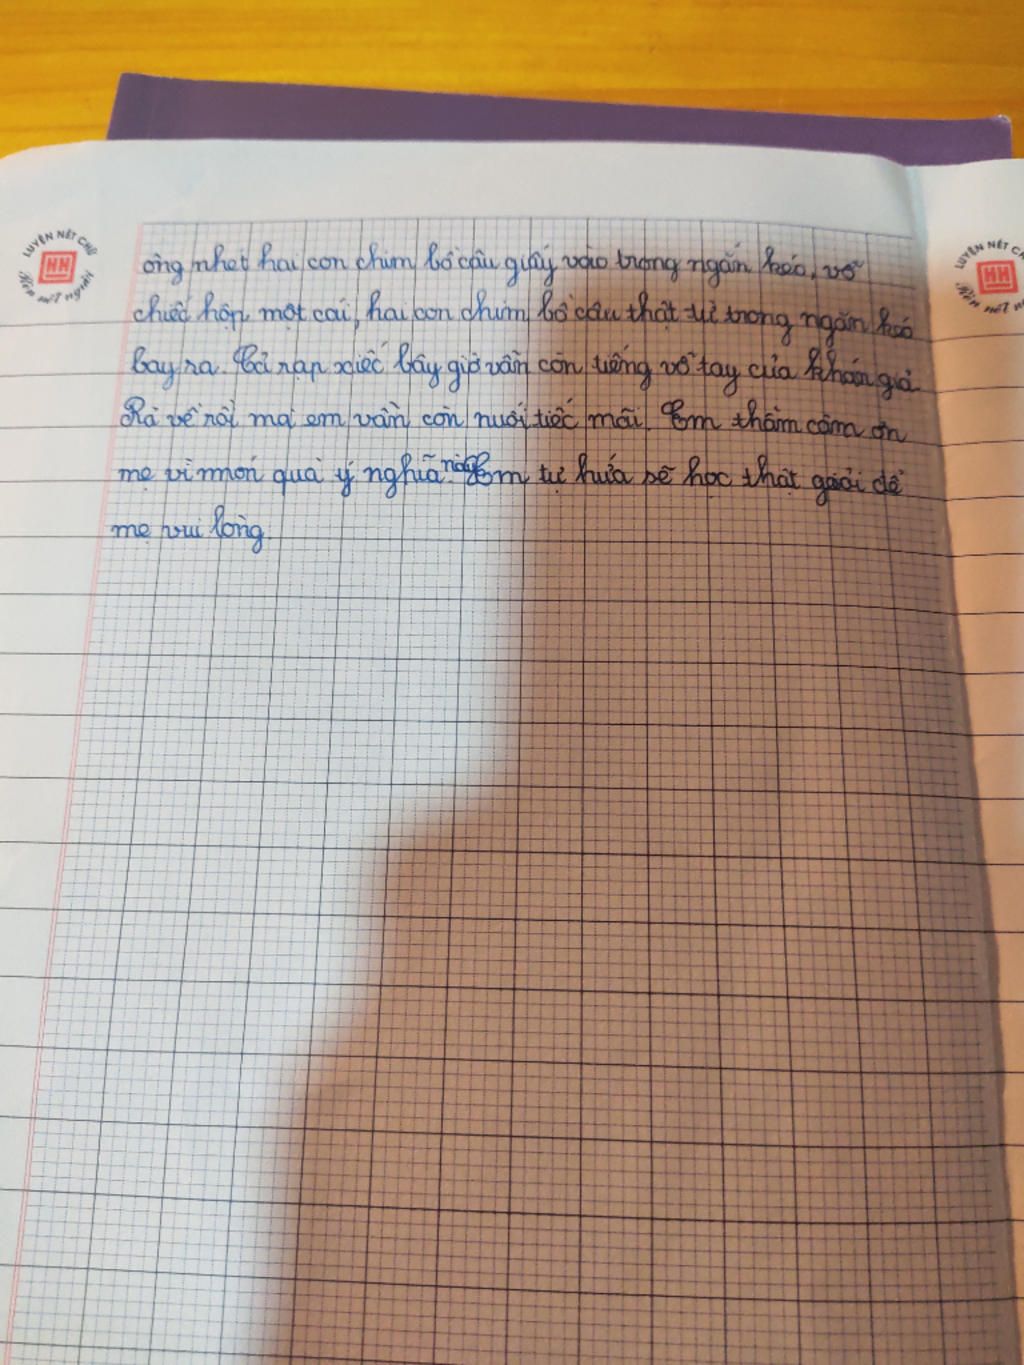 LUYỆN NÉT CHỮ
HH
Rèn nết người
LUYỆN NÉT
HH
Rèn nết n
ông nhét hai con chim bồ câu giấy vào trong ngăn kéo, vỗ
chiếc hộp một cái, hai con chim bồ câu thật từ trong ngăn kéo
bay ra. Cả rạp xiếc bây giờ vẫn còn tiếng vỗ tay của khán giả
Ra về rồi mà em vẫn còn nuối tiếc mãi. Em thầm cảm ơn
mẹ vì món quà ý nghĩa này. Em tự hứa sẽ học thật giỏi để
mẹ vui lòng.